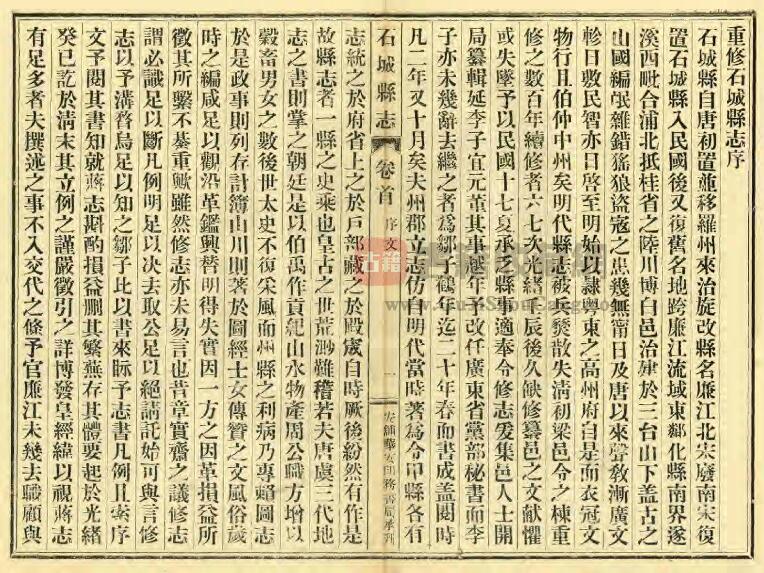 重修石城縣志序
石城縣自唐初置並移羅州來治旋改縣名廉江北宋廢南宋復
置石城縣入民國後又復舊名地跨廉江流域東鄰化縣南界遂
溪西毗合浦北抵桂省之陸川博白邑治建於三台山下蓋古之
山國編氓雜錯猺狼盜寇之患幾無甯日及唐以來聲敎漸廣文
軫日敷民智亦日啓至明始以隸粤東之高州府自是而衣冠文
物行且伯仲中州矣明代縣志被兵燹散失清初梁邑令之棟重
修之數百年續修者六七次光緒壬辰後久缺修纂邑之文獻懼
或失墜予以民國十七夏承乏縣事適奉令修志爰集邑人士開
局纂輯延李子宜元董其事越年予改任廣東省黨部秘書而李
子亦未幾辭去繼之者爲鄒子鶴年迄二十年春而書成蓋閱時
凡二年又十月矣夫州郡立志仿自明代當時著爲令甲縣各有
石城縣志
卷首
序文
一
志統之於府省上之於戶部藏之於殿宬自時厥後紛然有作是
故縣志者一縣之史乘也皇古之世荒渺難稽若夫唐虞三代地
志之書則掌之朝廷是以伯禹作貢紀山水物產周公職方增以
穀畜男女之數後世太史不復采風而州縣之利病乃專藉圖志
於是政事則列存計簿山川則著於圖經士女傳贊之文風俗歲
時之編咸足以觀沿革鑑興替明得失實因一方之因革損益所
徵其所繫不綦重歟雖然修志亦未易言也昔章實齋之議修志
謂必識足以斷凡例明足以决去取公足以絕請託始可與言修
志以予溝瞀烏足以知之鄒子比以書來眎予志書凡例且索序
文予閱其書知就蔣志斟酌損益删其繁蕪存其體要起於光緒
癸巳訖於清末其立例之謹嚴徵引之詳博發皇經緯以視蔣志
有足多者夫撰述之事不入交代之條予官廉江未幾去職顧與
古籍